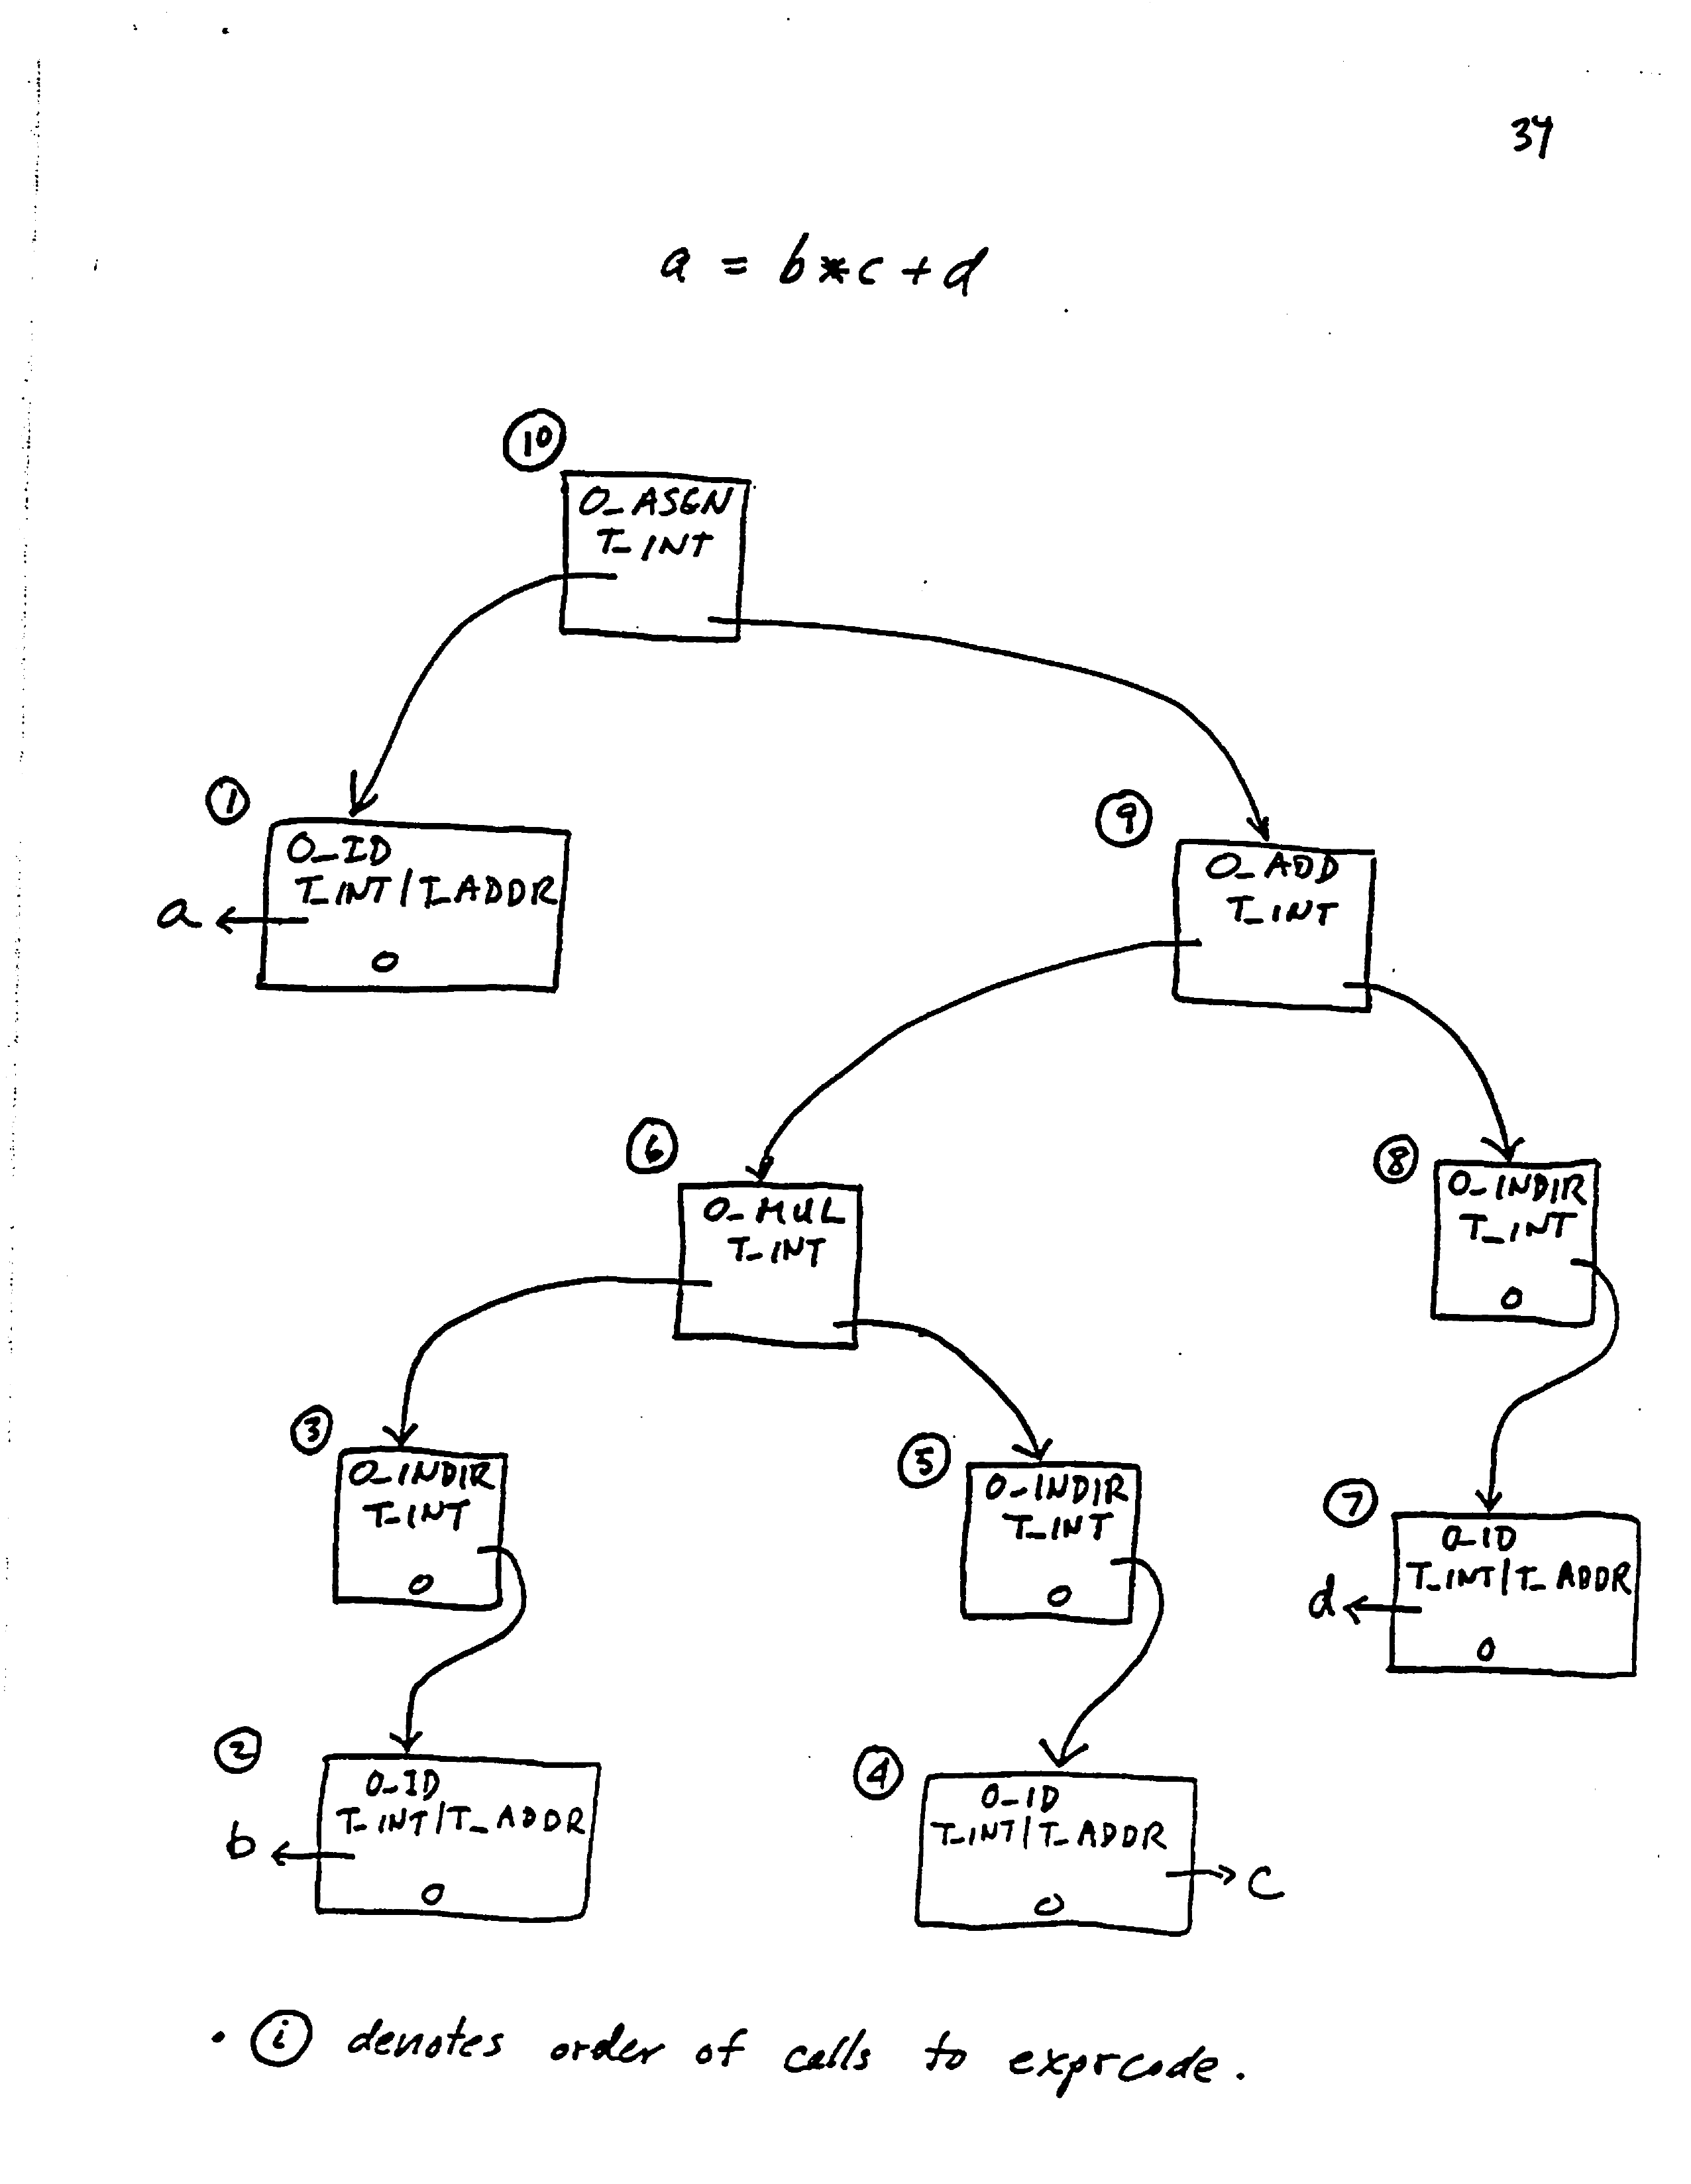 34
a = b*c+d
10
O_ASGN
T_INT
1
O_ID
T_INT/T_ADDR
a
0
9
O_ADD
T_INT
6
O_MUL
T_INT
8
O_INDIR
T_INT
0
3
O_INDIR
T_INT
0
5
O_INDIR
T_INT
0
7
O_ID
T_INT/T_ADDR
d
0
2
O_ID
T_INT/T_ADDR
b
0
4
O_ID
T_INT/T_ADDR
c
0
• i denotes order of calls to exprcode.